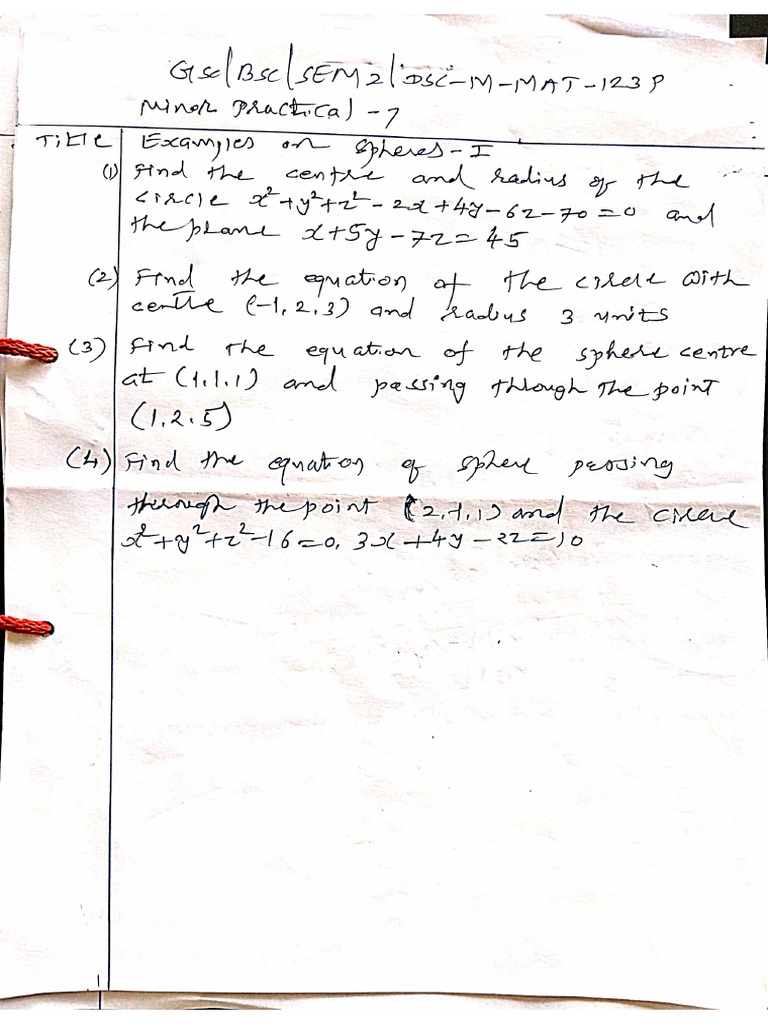 GSC/BSC/SEM2/DSC-M-MAT-123P
Minor Practical - 7
Title Examples on Spheres - I
(1) Find the centre and radius of the
circle x²+y²+z²-2x+4y-6z-70=0 and
the plane x+5y-7z=45
(2) Find the equation of the circle with
centre (-1,2,3) and radius 3 units
(3) Find the equation of the sphere centre
at (1,1,1) and passing through the point
(1,2,5)
(4) Find the equation of sphere passing
through the point (2,-1,1) and the circle
x²+y²+z²-16=0, 3x+4y-2z=10